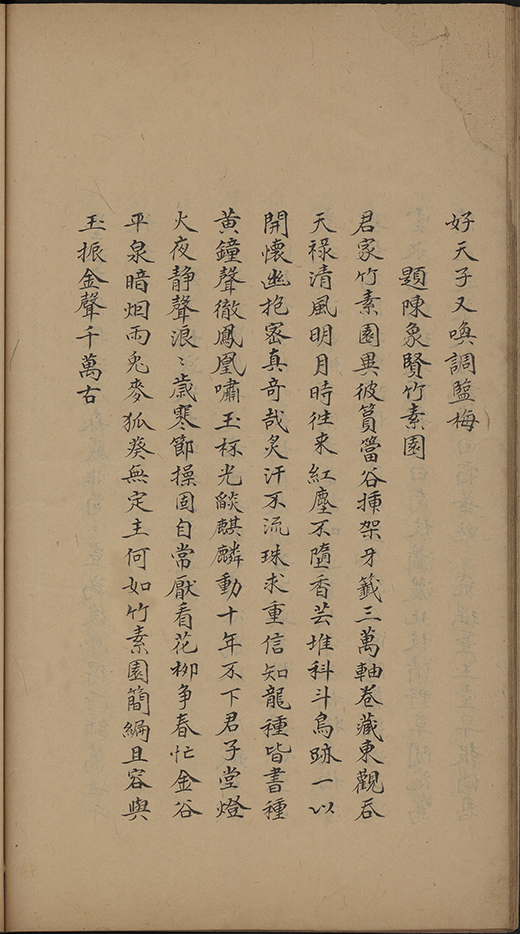 好天子又喚調鹽梅
題陳象賢竹素園
君家竹素園異彼篔簹谷揷架牙籤三萬軸卷藏東觀吞
天祿清風明月時徃来紅塵不隨香芸堆科斗鳥跡一以
開懷幽抱密真竒哉炙汗不流珠求重信知龍種皆書種
黃鐘聲徹鳳凰嘯玉杯光燄麒麟動十年不下君子堂燈
火夜静聲浪〻歲寒節操固自常厭看花柳争春忙金谷
平泉暗烟雨兎麥狐葵無定主何如竹素園簡編且容與
玉振金聲千萬古